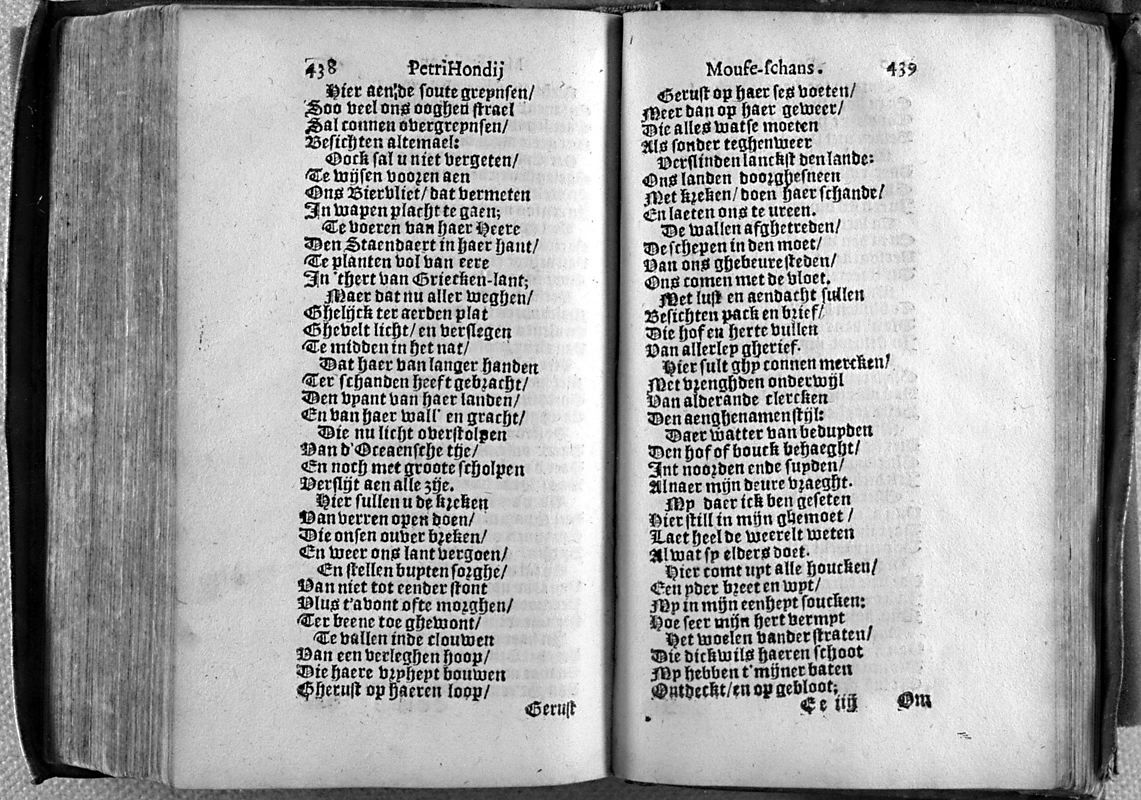 438 PetriHondij
Hier aen de soute greynsen/
Soo veel ons ooghen strael
Sal connen overgreynsen/
Besichten altemael:
Oock sal u niet vergeten/
Te wijsen vooren aen
Ons Biervliet/ dat vermeten
In wapen placht te gaen;
Te voeren van haer Heere
Den Staendaert in haer hant/
Te planten vol van eere
In 'thert van Griecken-lant;
Maer dat nu aller weghen/
Ghelijck ter aerden plat
Ghevelt licht/ en verslegen
Te midden in het nat/
Dat haer van langer handen
Ter schanden heeft gebracht/
Den vyant van haer landen/
En van haer wall' en gracht/
Die nu licht overstolpen
Van d'Oceaensche tye/
En noch met groote scholpen
Verslijt aen alle zije.
Hier sullen u de kreken
Van verren open doen/
Die onsen ouver breken/
En weer ons lant vergoen/
En stellen buyten sorghe/
Van niet tot eender stont
Vlus t'avont ofte morghen/
Ter beene toe ghewont/
Te vallen inde clouwen
Van een verleghen hoop/
Die haere vryheyt bouwen
Gherust op haeren loop/
Gerust
Mouse-schans. 439
Gerust op haer ses voeten/
Meer dan op haer geweer/
Die alles watse moeten
Als sonder teghenweer
Verslinden lanckst den lande:
Ons landen doorghesneen
Met kreken/ doen haer schande/
En laeten ons te vreen.
De wallen afghetreden/
De schepen in den moet/
Van ons ghebeure steden/
Ons comen met de vloet.
Met lust en aendacht sullen
Besichten pack en brief/
Die hof en herte vullen
Van allerley gherief.
Hier sult ghy connen mercken/
Met vrenghden onderwijl
Van alderande clercken
Den aenghenamen stijl:
Daer watter van beduyden
Den hof of bouck behaeght/
Int noorden ende suyden/
Alnaer mijn deure vraeght.
My daer ick ben geseten
Hier still in mijn ghemoet /
Laet heel de weerelt weten
Al wat sy elders doet.
Hier comt uyt alle houcken/
Een yder breet en wyt/
My in mijn eenheyt soucken:
Hoe seer mijn hert vermyt
Het woelen vander straten/
Die dickwils haeren schoot
My hebben t'mijner baten
Ontdeckt/ en op gebloot;
Ee iij Om